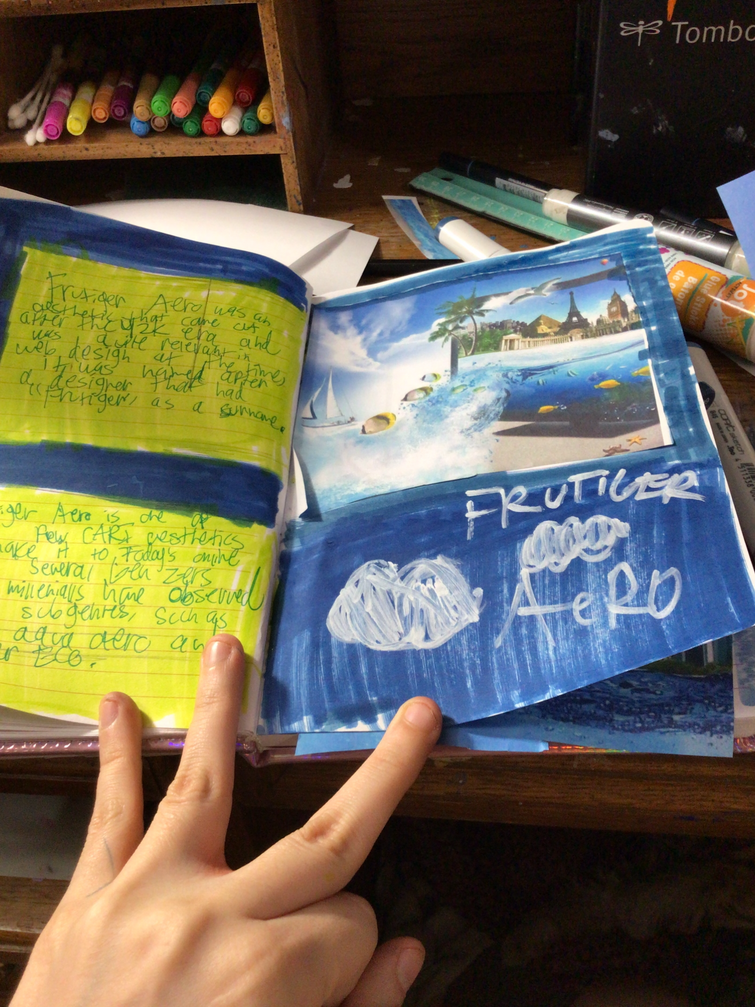 Tombo
Frutiger Aero was an
aesthetic that came out
after the Y2K era and
was quite relevant in
web design at the time,
It was named after
a designer that had
"Frutiger" as a surname.
iger Aero is one of
few CARI aesthetics
make it to today's online
Several Gen Zers
millenials have observed
subgenres, such as
aqua aero an
r Eco.
FRUTIGER
AeRO